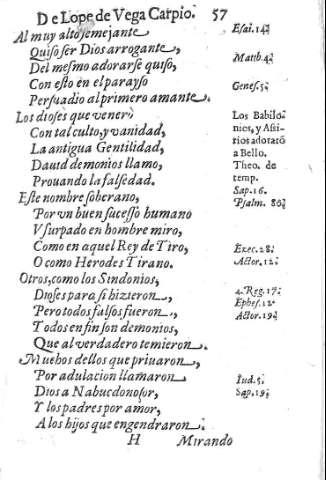 De Lope de Vega Carpio. 57
Al muy alto semejante
Quiso ser Dios arrogante,
Del mesmo adorarse quiso,
Con esto en el parayso
Persuadio al primero amante.
Los dioses que venerò
Con tal culto, y vanidad,
La antigua Gentilidad,
Dauid demonios llamo,
Prouando la falsedad.
Este nombre soberano,
Por vn buen sucesso humano
Vsurpado en hombre miro,
Como en aquel Rey de Tiro,
O como Herodes Tirano.
Otros, como los Sindonios,
Dioses para si hizieron,
Pero todos falsos fueron,
Todos en fin son demonios,
Que al verdadero temieron.
Muchos dellos que priuaron,
Por adulacion llamaron
Dios a Nabucdonosor,
Y los padres por amor,
A los hijos que engendraron.
H Mirando
Esai. 14.
Matth. 4.
Genes. 5.
Los Babilo
nios, y Assi-
rios adorarō
a Bello.
Theo. de
temp.
Sap. 16.
Psalm.
Ezec. 28.
Actor. 12.
4. Reg. 17.
Ephes. 12.
Actor. 19.
Iud. 5.
Sap. 19.